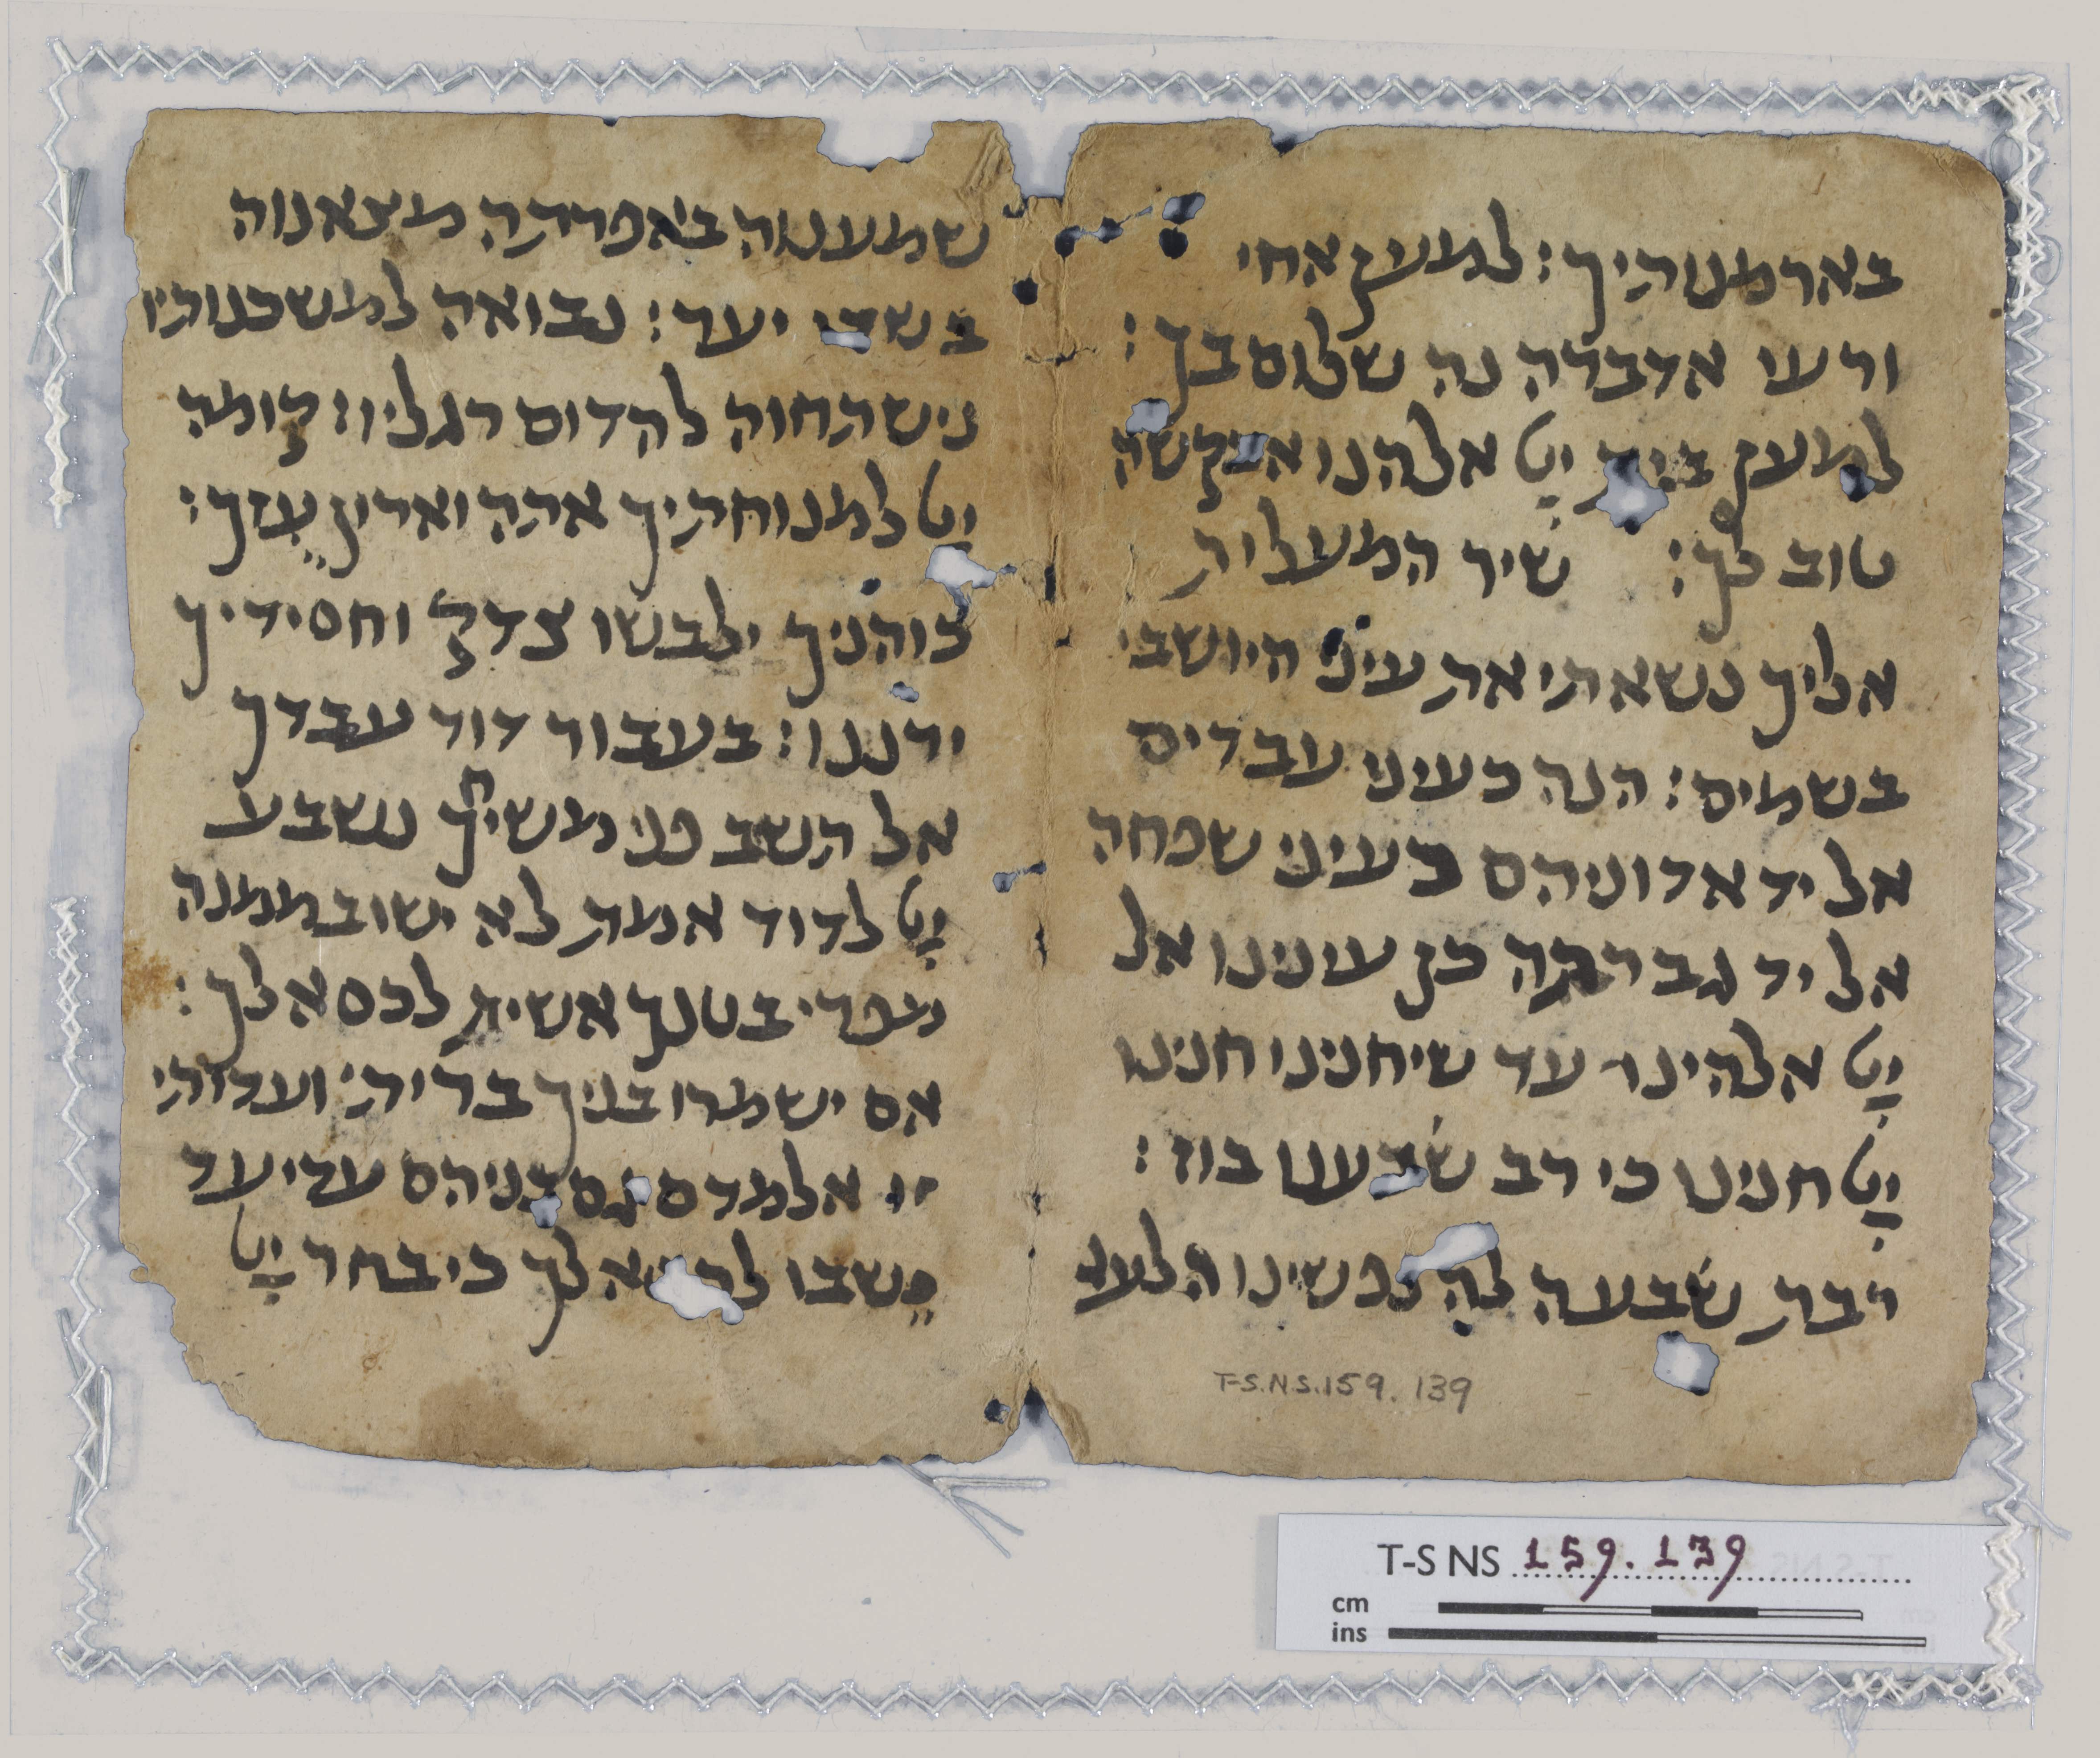 בארמנותיך: למען אחי
ורעי אדברה נה שלום בך:
למען בית יט אלהנו אבקשה
טוב לך: שיר המעלית
אליך נשאתי את עיני היושבי
בשמים: הנה כעיני עבדים
אל יד אדוניהם כעיני שפחה
אל יד גברתה כן עינינו אל
יט אלהינו עד שיחנינו חנינו
יט חנינו כי רב שבענו בוז:
רבת שבעה לה נפשינו הלעג
T-S.N.S.159.139
שמענוה באפרתה מצאנוה
בשדי יער: נבואה למשכנותיו
נישתחוה להדום רגליו: קומה
יט למנוחתיך אתה וארון עזך:
כוהניך ילבשו צדק וחסידיך
ירננו: בעבור דוד עבדך
אל תשב פני משיחך נשבע
יט לדוד אמת לא ישוב ממנה
מפרי בטנך אשית לכס אלך:
אם ישמרו בניך בריתי ועדותי
זו אלמדם גם בניהם עדי עד
ישבו אלך כי בחר יט
T-S NS 159.139
cm
ins